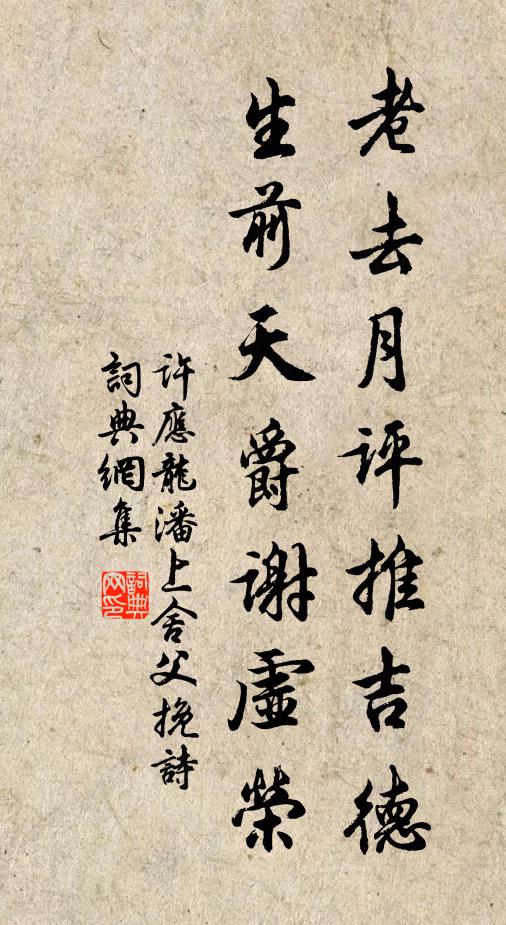 老去月评推吉德
生前天爵谢虚荣
許應龍潘上舍父挽詩
詞典網集
詞典网印